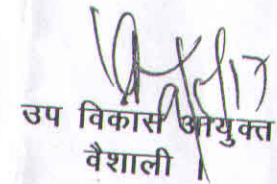 उप विकास आयुक्त
वैशाली